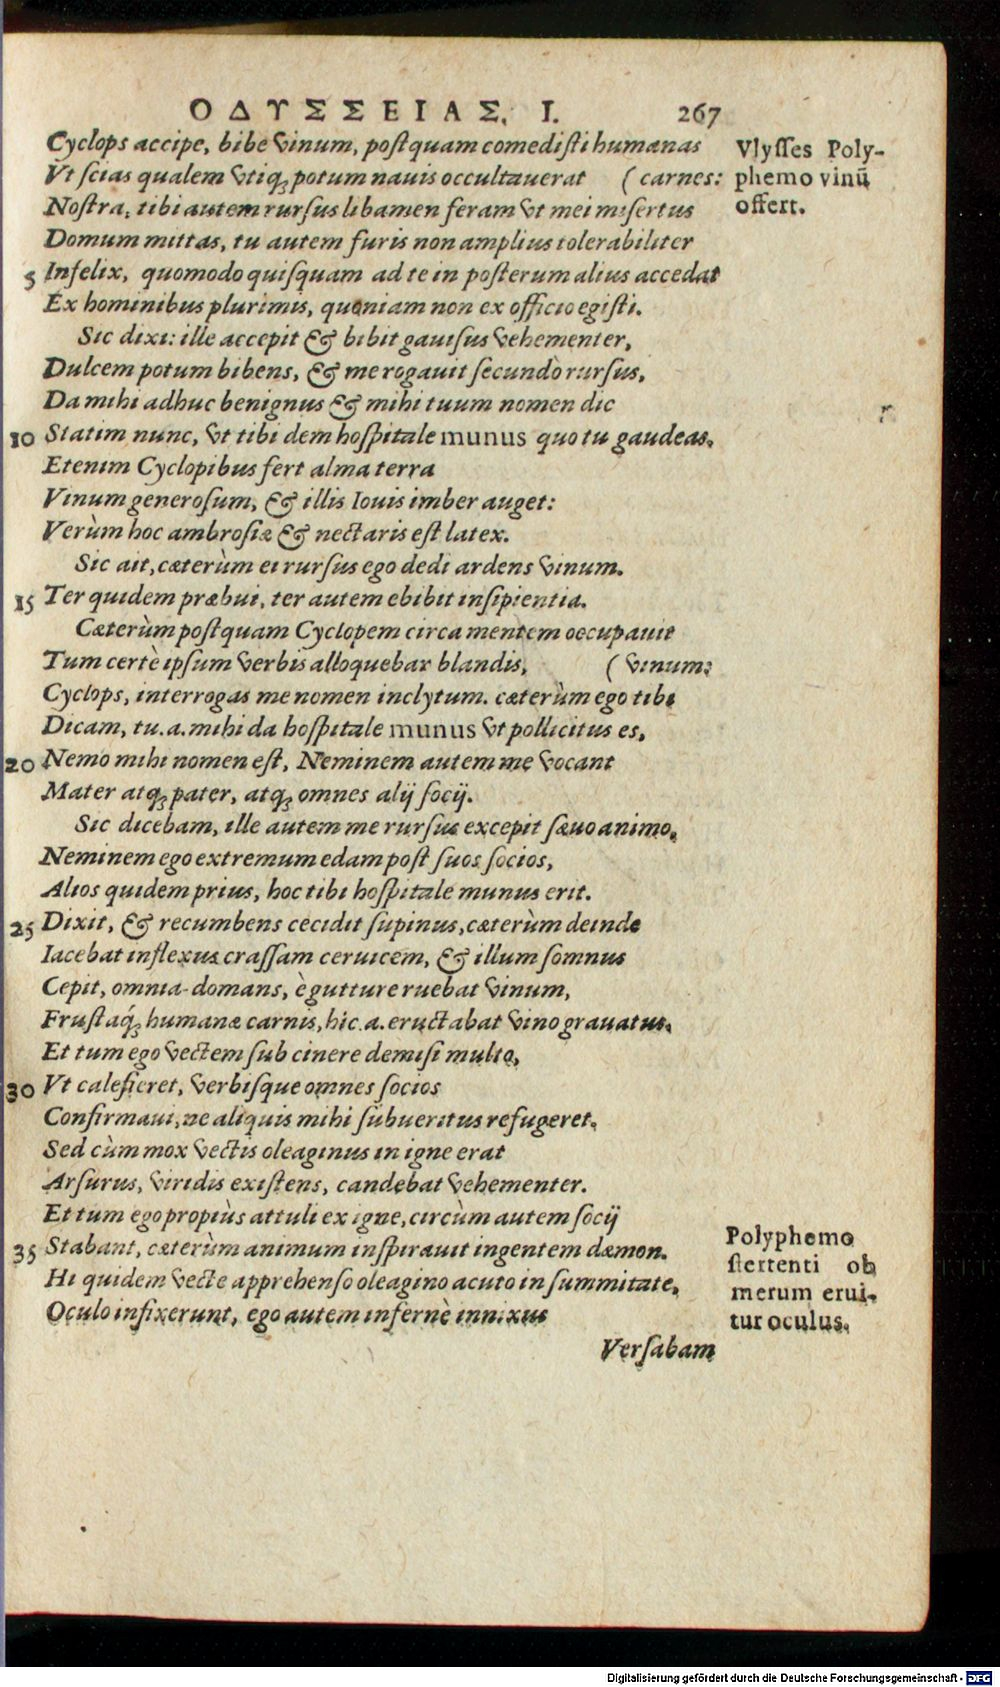 ΟΔΥΣΣΕΙΑΣ. Ι. 267
Cyclops accipe, bibe vinum, postquam comedisti humanas
Vt scias qualem vtiq; potum nauis occultauerat (carnes:
Nostra, tibi autem rursus libamen feram vt mei misertus
Domum mittas, tu autem furis non amplius tolerabiliter
5 Infelix, quomodo quisquam ad te in posterum alius accedat
Ex hominibus plurimis, quoniam non ex officio egisti.
Sic dixi: ille accepit & bibit gauisus vehementer,
Dulcem potum bibens, & me rogauit secundò rursus,
Da mihi adhuc benignus & mihi tuum nomen dic
10 Statim nunc, vt tibi dem hospitale munus quo tu gaudeas.
Etenim Cyclopibus fert alma terra
Vinum generosum, & illis Iouis imber auget:
Verùm hoc ambrosiæ & nectaris est latex.
Sic ait, cæterùm ei rursus ego dedi ardens vinum.
15 Ter quidem præbui, ter autem ebibit insipientia.
Cæterùm postquam Cyclopem circa mentem occupauit
Tum certè ipsum verbis alloquebar blandis, (vinum:
Cyclops, interrogas me nomen inclytum. cæterùm ego tibi
Dicam, tu.a. mihi da hospitale munus vt pollicitus es,
20 Nemo mihi nomen est, Neminem autem me vocant
Mater atq; pater, atq; omnes alij socij.
Sic dicebam, ille autem me rursus excepit sæuo animo,
Neminem ego extremum edam post suos socios,
Alios quidem prius, hoc tibi hospitale munus erit.
25 Dixit, & recumbens cecidit supinus, cæterùm deinde
Iacebat inflexus crassam ceruicem, & illum somnus
Cepit, omnia-domans, è gutture ruebat vinum,
Frustaq́; humanæ carnis, hic.a. eructabat vino grauatus.
Et tum ego vectem sub cinere demisi multo,
30 Vt calefieret, verbisque omnes socios
Confirmaui, ne aliquis mihi subueritus refugeret.
Sed cùm mox vectis oleaginus in igne erat
Arsurus, viridis existens, candebat vehementer.
Et tum ego propiùs attuli ex igne, circùm autem socij
35 Stabant, cæterùm animum inspirauit ingentem dæmon.
Hi quidem vecte apprehenso oleagino acuto in summitate,
Oculo infixerunt, ego autem infernè innixus
Versabam
Vlysses Poly-
phemo vinũ
offert.
Polyphemo
stertenti ob
merum erui-
tur oculus.
Digitalisierung gefördert durch die Deutsche Forschungsgemeinschaft - DFG